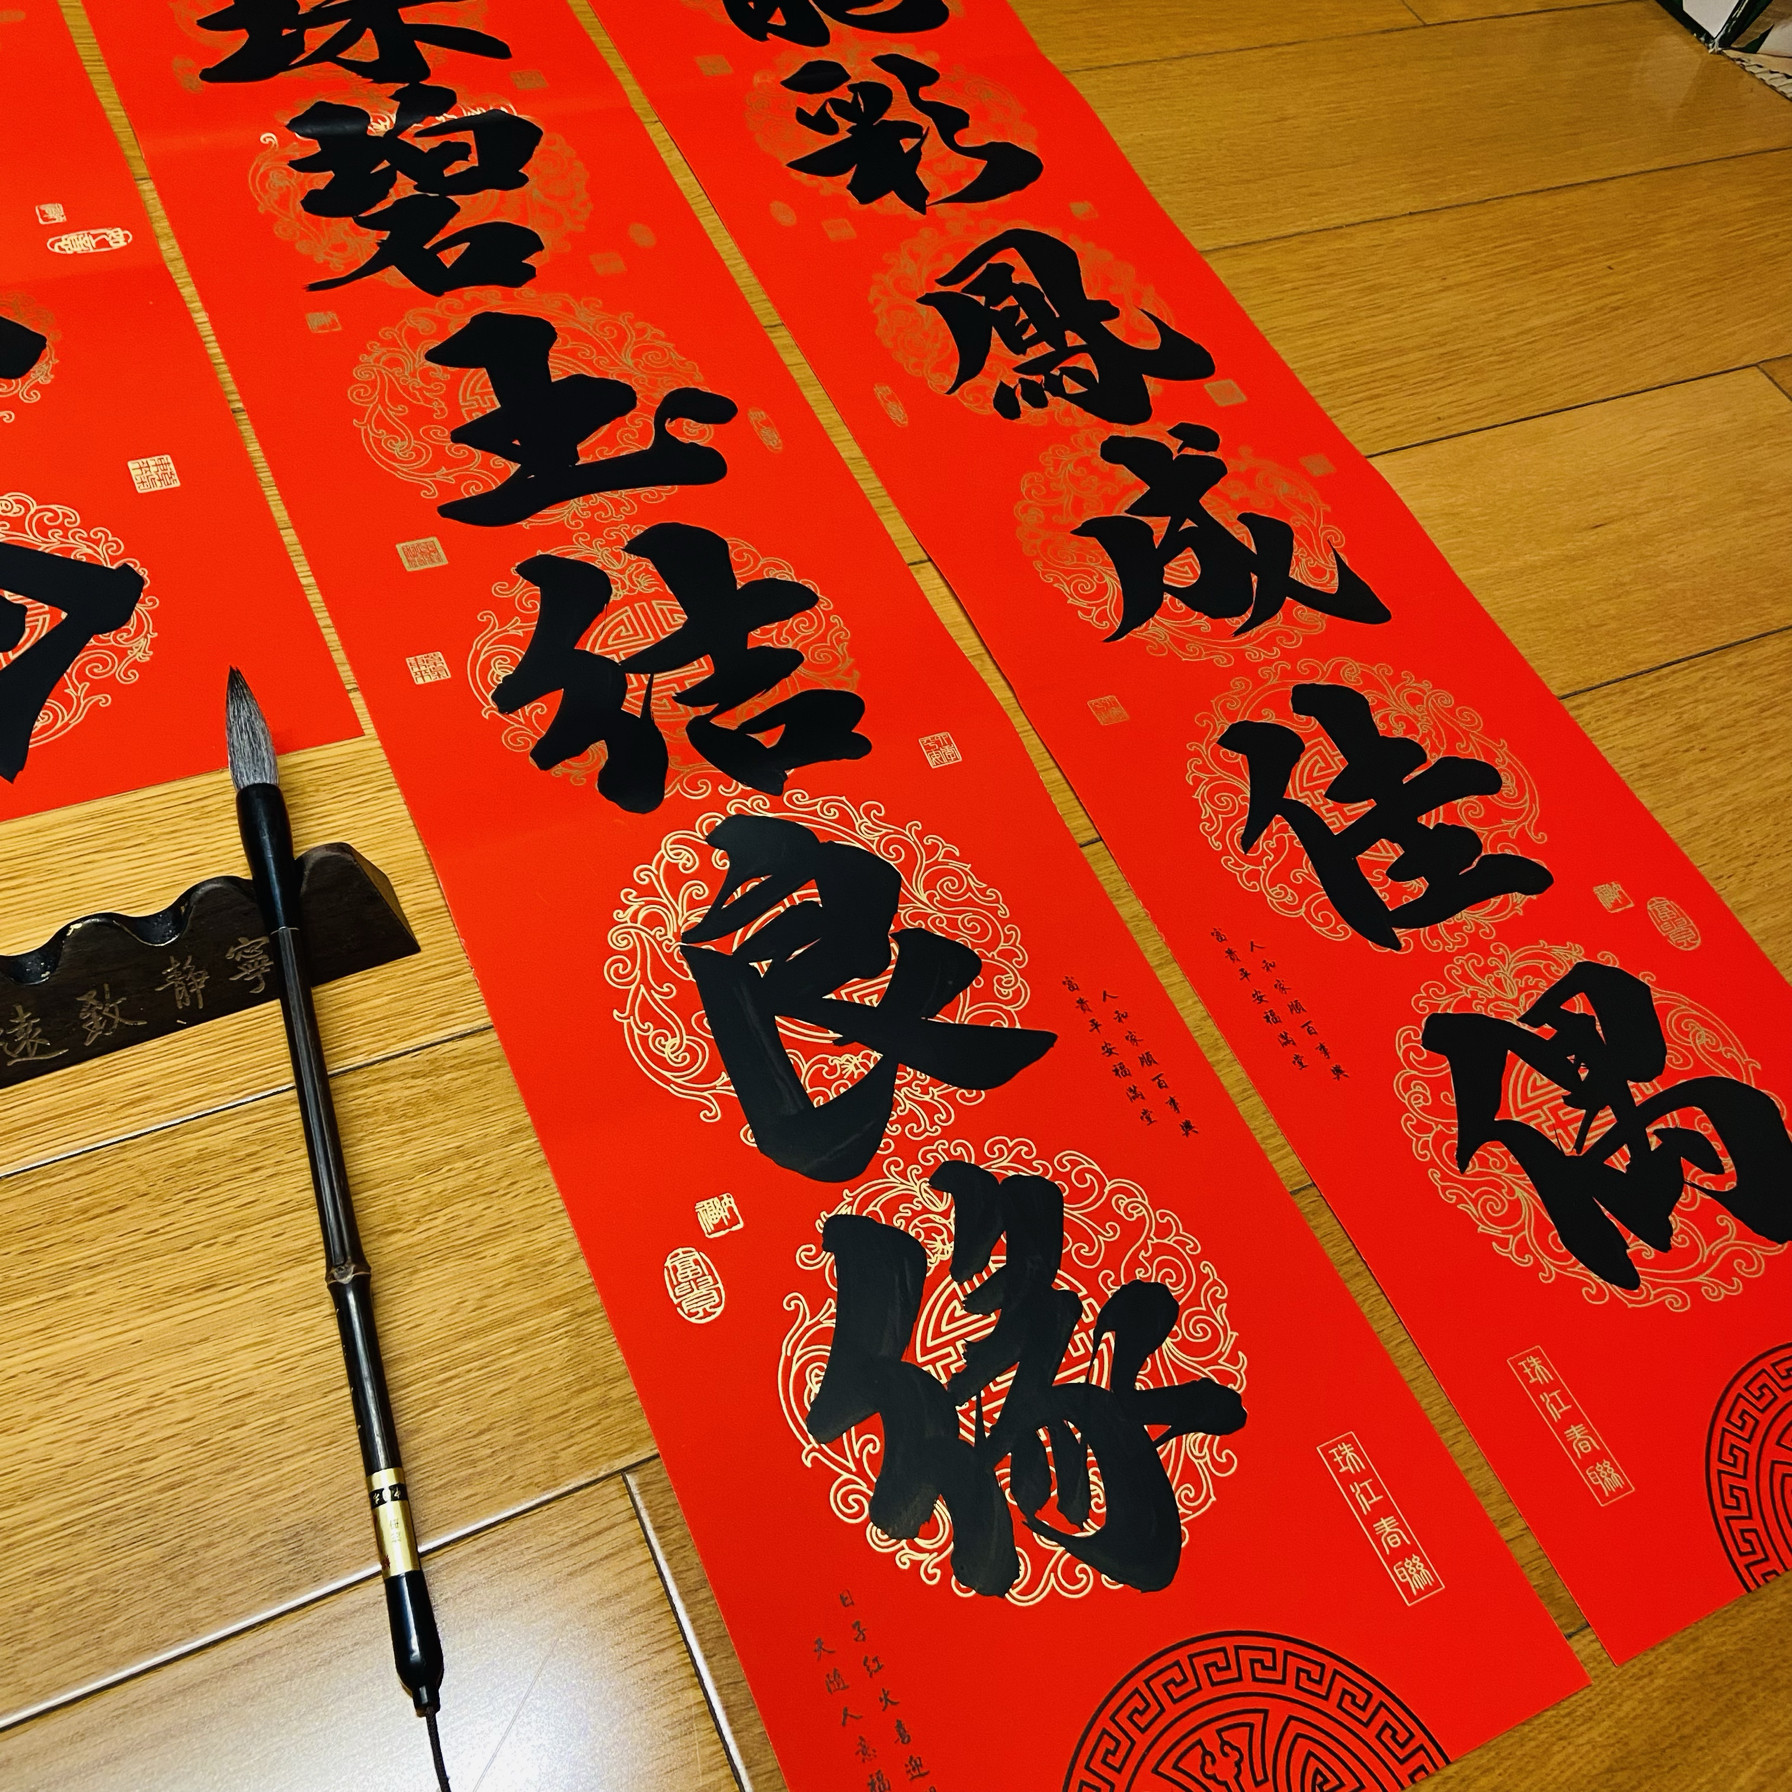 龍彩鳳成佳偶
珠碧玉結良緣
人和家順百事興
富貴平安福滿堂
珠江春聯
人和家順百事興
富貴平安福滿堂
珠江春聯
日子紅火喜迎
天隨人意福
寧靜致遠